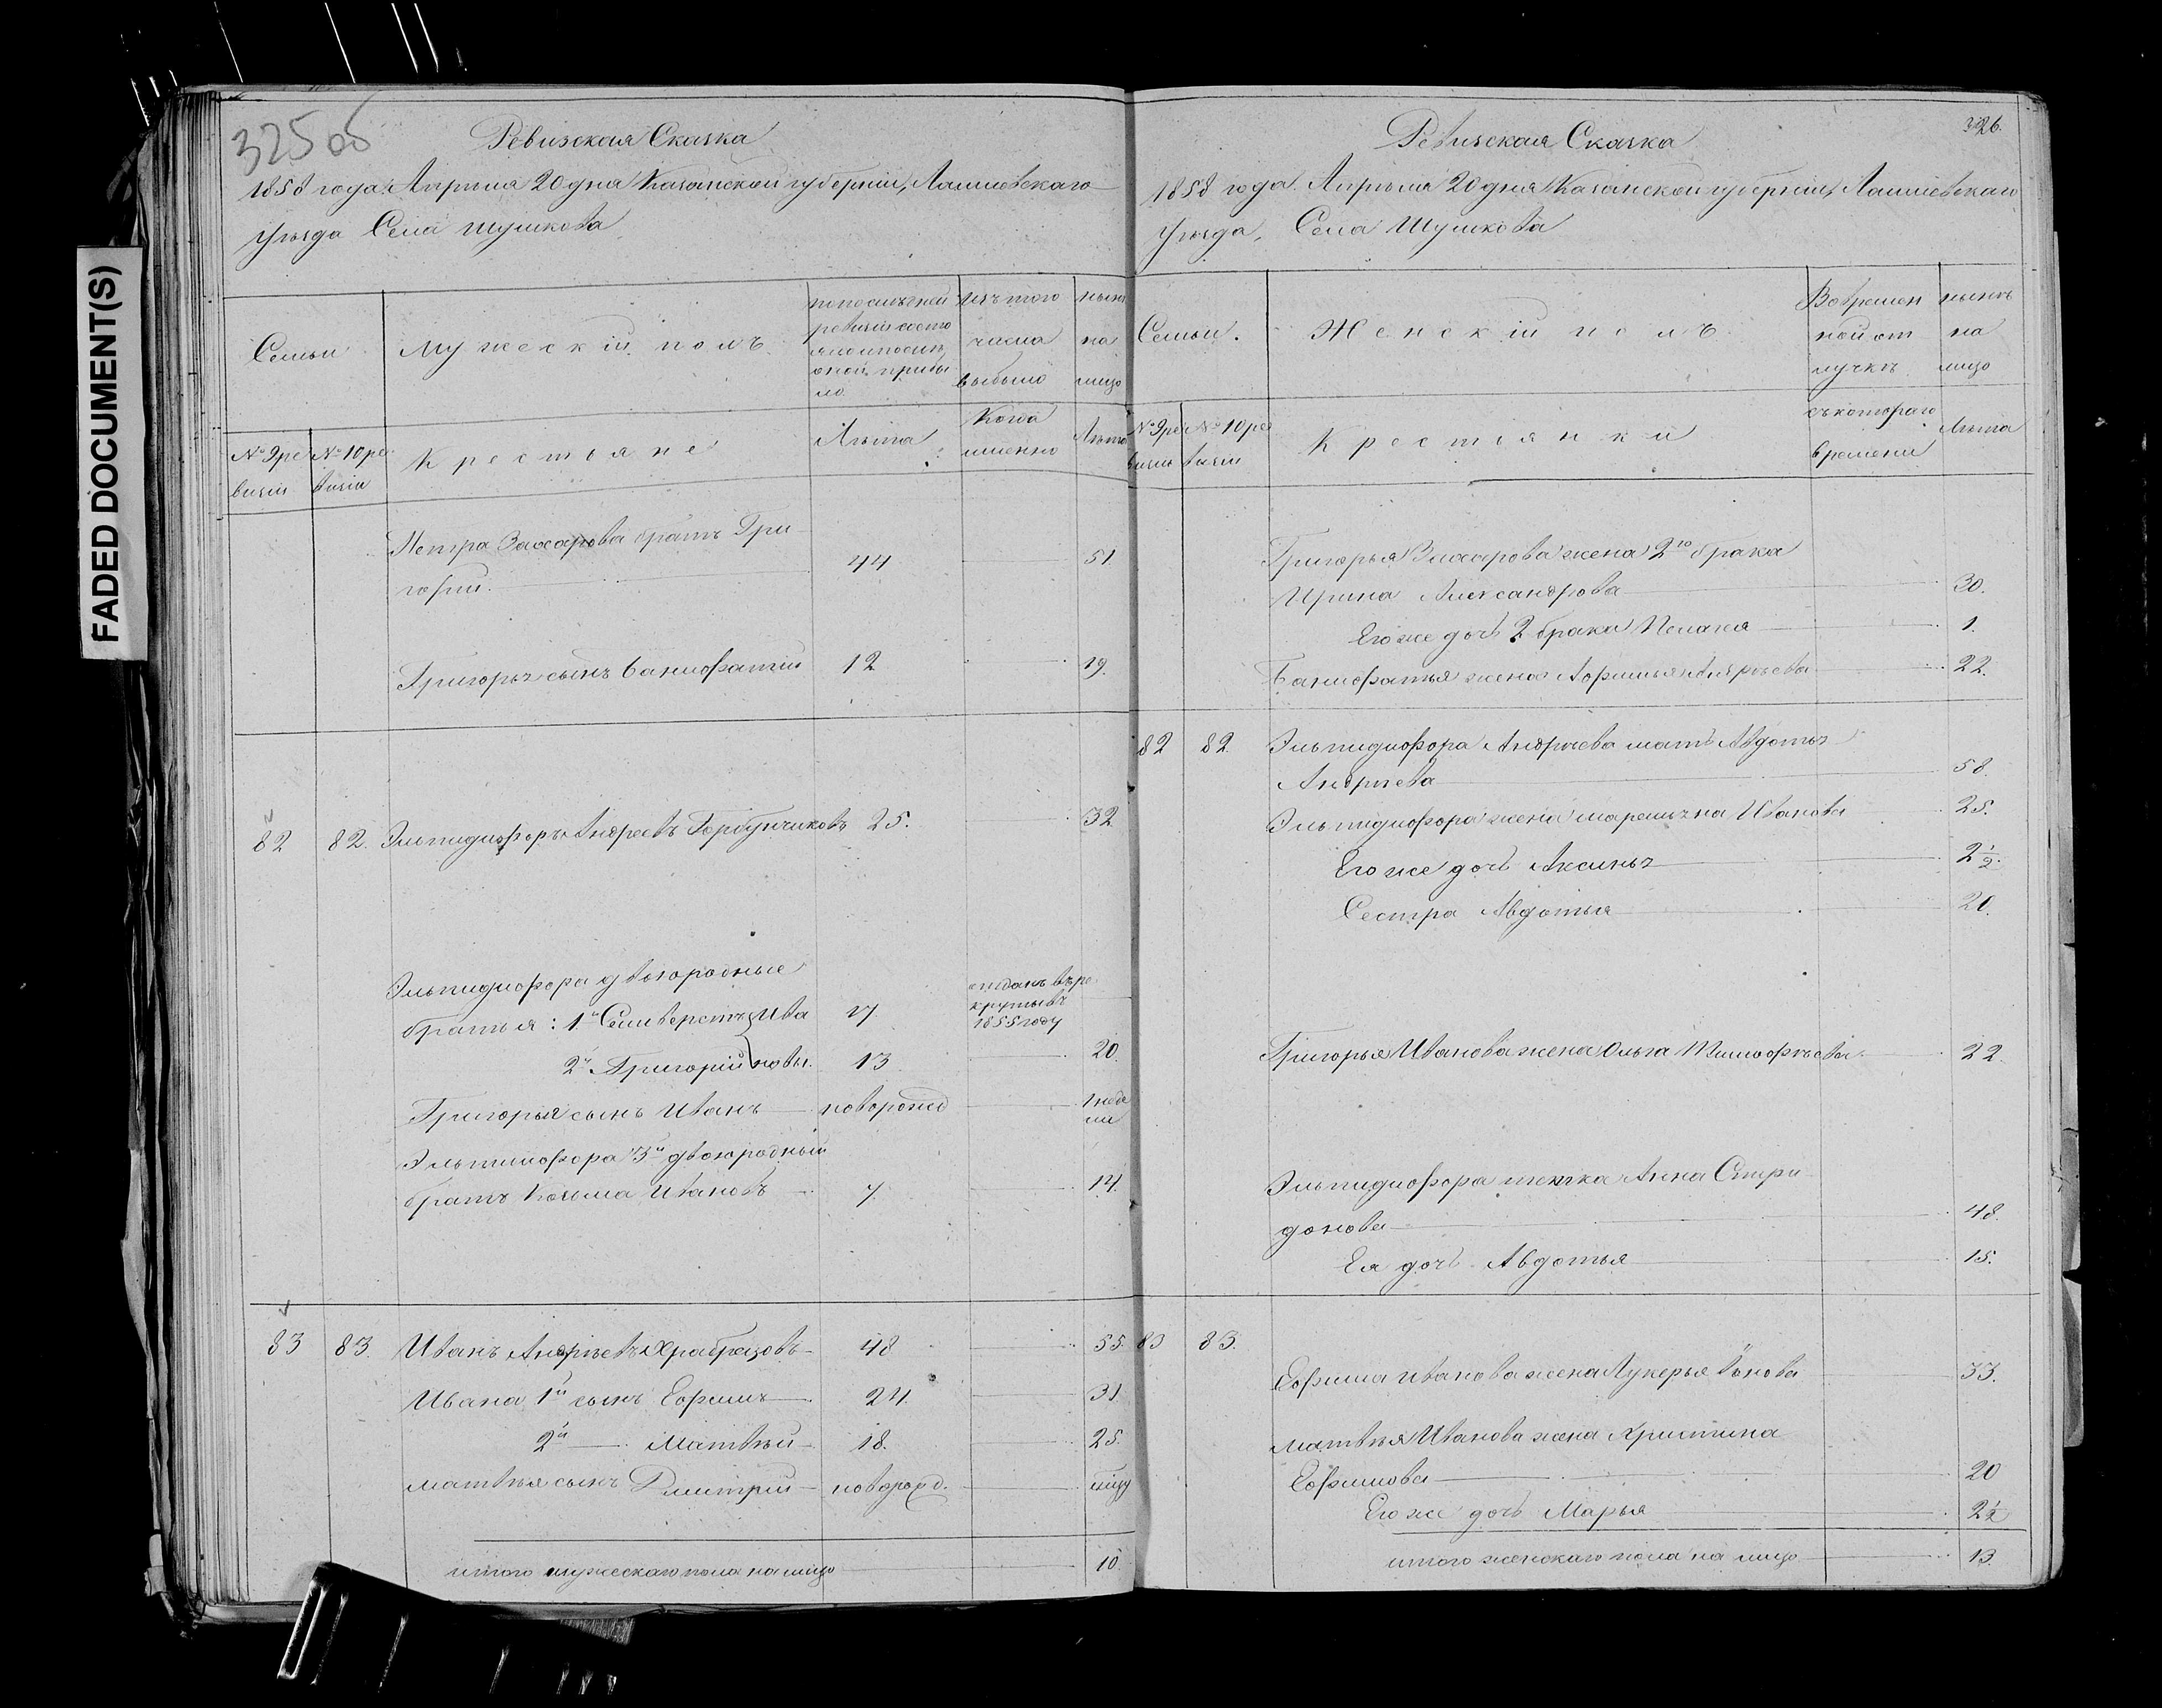 FADED DOCUMENT(S)
325 об
Ревизская Сказка
1858 года Апреля 20 дня Казанской губернии, Лаишевскаго
уѣзда Села Шушкова
Семьи
Мужескій полъ
по послѣдней ревизіи состояло и послѣ оной прибыло
изъ того числа выбыло
нынѣ на лицо
№ 9 ревизіи
№ 10 ревизіи
Крестьяне
Лѣта
Когда именно
Лѣта
Петра Захарова братъ Гри
горій 44 51.
Григорья сынъ 12 19.
82 82. Эльпидифоръ Андреевъ Горбунчиковъ 25. 32
Эльпидифора двоюродные
братья: 1й Селиверстъ Ива 17 отданъ въ рекруты въ 1855 году
2й Григорій новы. 13 20.
Григорья сынъ Иванъ новорожд 1 недели
Эльпидифора 3й двоюродный
братъ Козьма Ивановъ 7 14.
83 83. Иванъ Андреевъ Храбрецовъ 48 55.
Ивана 1й сынъ Ефимъ 24. 31
2й Матвѣй 18. 25.
Матвѣя сынъ Дмитрій новорожд.
итого мужескаго пола на лицо 10.
326.
Ревизская Сказка
1858 года Апреля 20 дня Казанской губерніи, Лаишевскаго
уѣзда, Села Шушкова
Семьи.
Женскій полъ
Во временной отлучкѣ
нынѣ на лицо
№ 9 ревизіи
№ 10 ревизіи
Крестьянки
съ котораго времени
Лѣта
Григорья Захарова жена 2го брака
Ирина Александрова 30.
Его же дочь 2 брака Пелагея 1.
жена Афимья Андреева 22.
82 82. Эльпидифора Андреева мать Авдотья
Андреева 58.
Эльпидифора жена Маремьяна Иванова 25.
Его же дочь Аксинья 2 1/2.
Сестра Авдотья 20.
Григорья Иванова жена Ольга Тимофѣева 22.
Эльпидифора тетка Анна Спири
донова 48.
Ея дочь Авдотья 15.
83 83.
Ефима Иванова жена Лукерья 33.
Матвѣя Иванова жена Христина
Ефимова 20
Его же дочь Марья 2 1/2
итого женскаго пола на лицо 13.